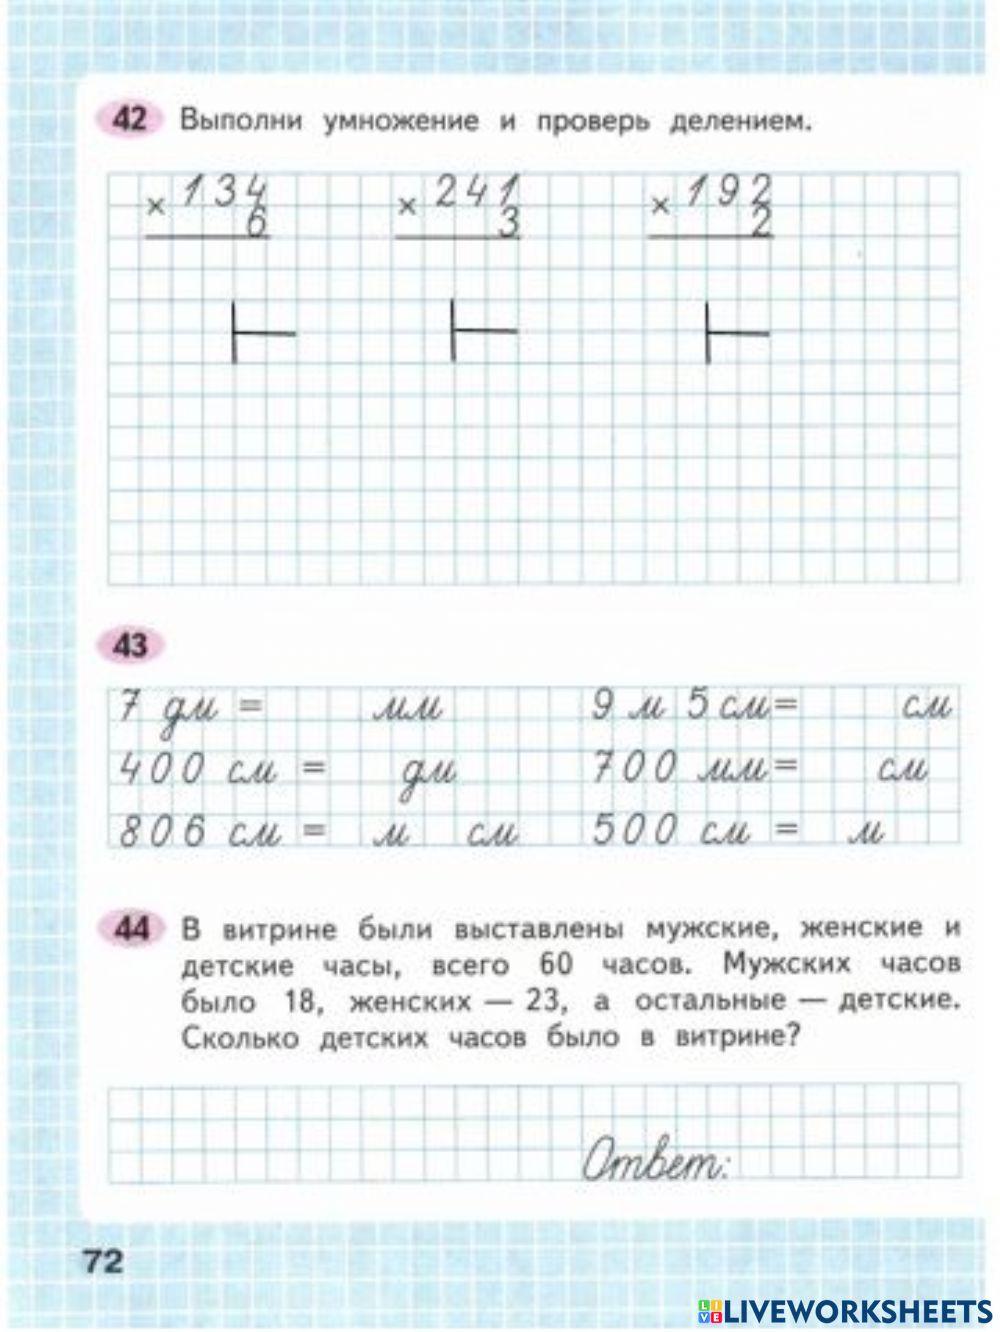 42 Выполни умножение и проверь делением.
× 134 × 241 × 192
6 3 2
43
7 дм = мм 9 м 5 см= см
400 см = дм 700 мм= см
806 см = м см 500 см = м
44 В витрине были выставлены мужские, женские и
детские часы, всего 60 часов. Мужских часов
было 18, женских — 23, а остальные — детские.
Сколько детских часов было в витрине?
Ответ:
72
LIVE LIVEWORKSHEETS